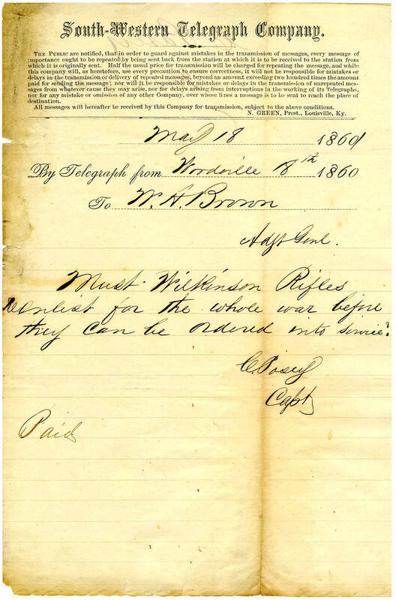 South-Western Telegraph Company.
THE PUBLIC are notified, that in order to guard against mistakes in the transmission of messages, every message of
importance ought to be repeated by being sent back from the station at which it is to be received to the station from
which it is originally sent. Half the usual price for transmission will be charged for repeating the message, and while
this company will, as heretofore, use every precaution to ensure correctness, it will not be responsible for mistakes or
delays in the transmission or delivery of repeated messages, beyond an amount exceeding two hundred times the amount
paid for sending the message; nor will it be responsible for mistakes or delays in the transmission of unrepeated mes-
sages from whatever cause they may arise, nor for delays arising from interruptions in the working of its Telegraphs,
nor for any mistake or omission of any other Company, over whose lines a message is to be sent to reach the place of
destination.
All messages will hereafter be received by this Company for transmission, subject to the above conditions.
N. GREEN, Prest., Louisville, Ky.
May 18 1861
By Telegraph from Woodville 18th 1860
To W. H. Brown
Adjt Genl.
Must Wilkinson Rifles
reenlist for the whole war before
they can be ordered into service?
C Posey
Capt
Paid